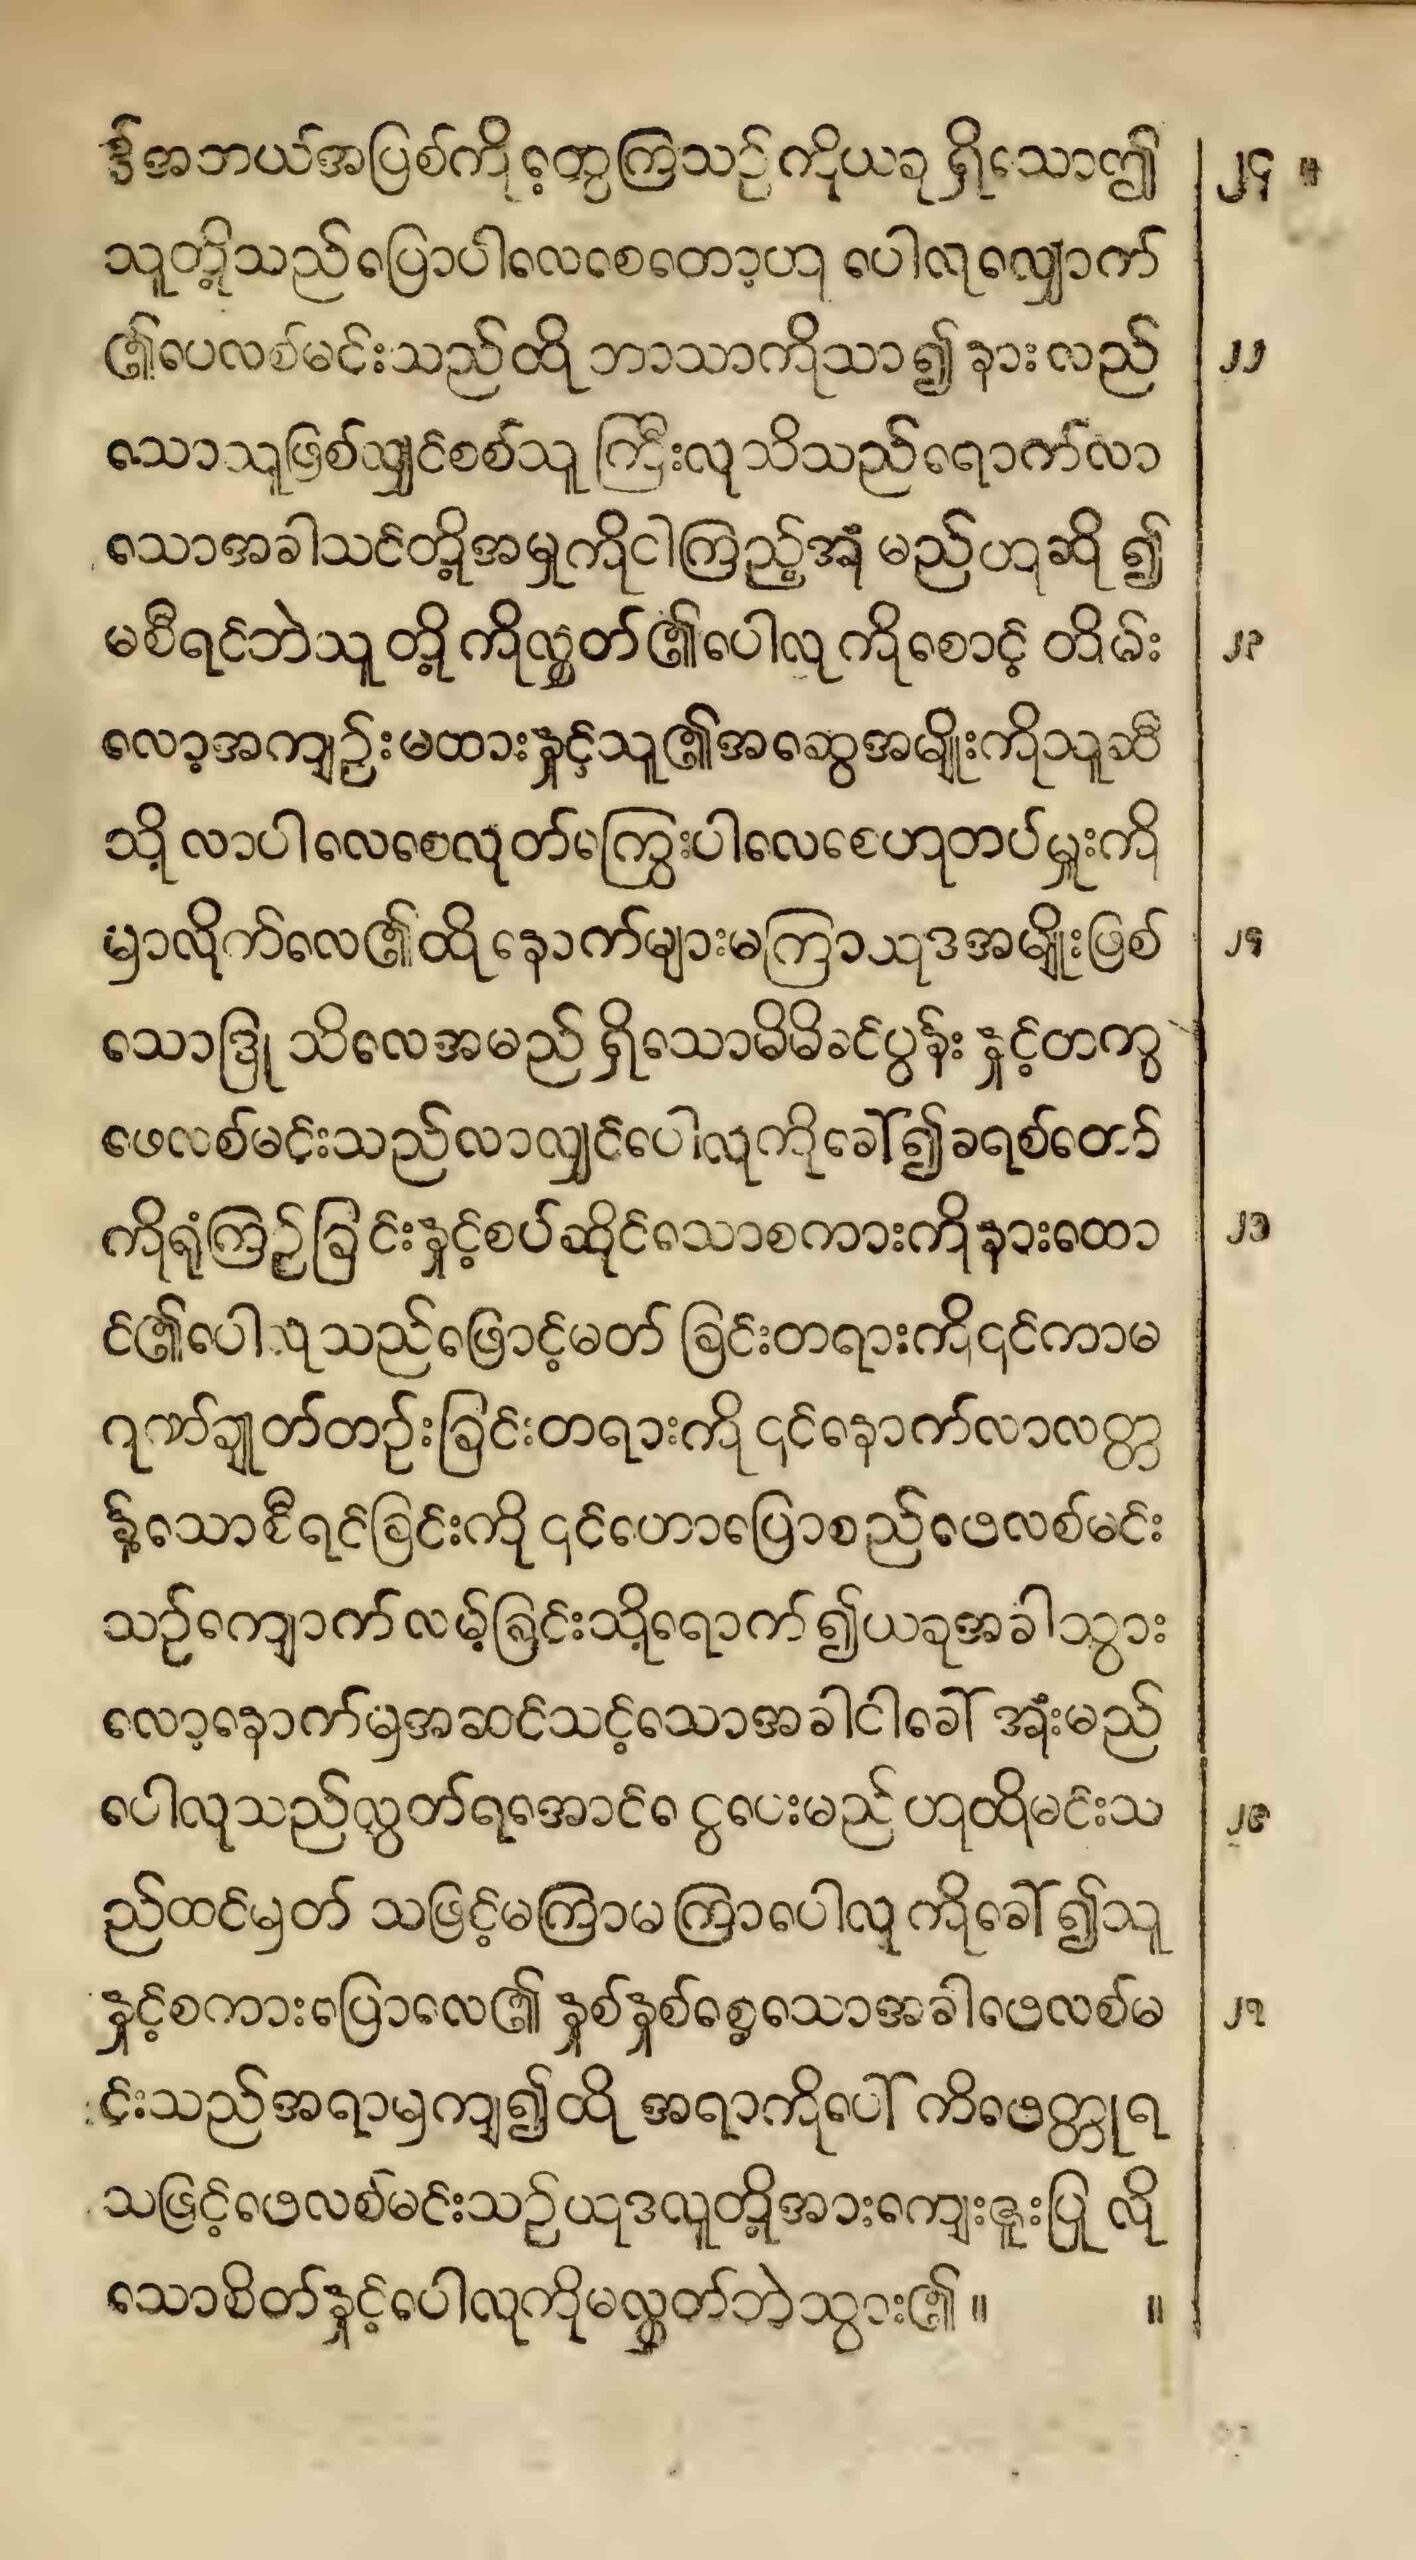 ၌အဘယ်အပြစ်ကိုတွေ့ကြသဉ်ကိုယခု ရှိသောဤ ၂၄ ။
သူတို့သည်ပြောပါလေစေတော့ဟု ပေါလုလျှောက်
၏ဖေလစ်မင်းသည်ထို ဘာသာကိုသာ၍ နားလည် ၂၂
သောသူဖြစ်လျှင်စစ်သူ ကြီးလုသိသည်ရောက်လာ
သောအခါသင်တို့အမှုကိုငါကြည့်အုံ မည်ဟုဆို ၍
မစီရင်ဘဲသူ တို့ ကိုလွှတ်၏ပေါလု ကိုစောင့် ထိမ်း ၂၃
လော့အကျဉ်းမထားနှင့်သူ၏အဆွေအမျိုးကိုသူဆီ
သို့ လာပါ လေစေလုတ်ကြွေးပါလေစေဟုတပ်မှူးကို
မှာလိုက်လေ၏ထို နောက်များမကြာယုဒအမျိုးဖြစ် ၂၄
သောဒြု သိလေအမည် ရှိသောမိမိခင်ပွန်း နှင့်တကွ
ဖေလစ်မင်းသည်လာလျှင်ပေါလုကိုခေါ်၍ခရစ်တော်
ကိုရုံကြဉ်ခြင်းနှင့်စပ်ဆိုင်သောစကားကိုနားထော ၂၅
င်၏ပေါလုသည်ဖြောင့်မတ် ခြင်းတရားကို၎င်ကာမ
ဂုဏ်ချုတ်တဉ်းခြင်းတရားကို ၎င်နောက်လာလတ္တ
န့်သောစီရင်ခြင်းကို ၎င်ဟောပြောစည်ဖေလစ်မင်း
သဉ်ကျောက်လမ့်ခြင်းသို့ရောက်၍ယခုအခါသွား
လော့နောက်မှအဆင်သင့်သောအခါငါခေါ် အုံးမည်
ပေါလုသည်လွှတ်ရအောင်ငွေပေးမည် ဟုထိုမင်းသ ၂၆
ည်ထင်မှတ် သဖြင့်မကြာမကြာပေါလု ကိုခေါ် ၍သူ
နှင့်စကားပြောလေ၏ နှစ်နှစ်စေ့သောအခါဖေလစ်မ ၂၇
င်းသည်အရာမှကျ၍ထို အရာကိုပေါ် ကိဖေတ္တုရ
သဖြင့်ဖေလစ်မင်းသဉ်ယုဒလူတို့အားကျေးဇူးပြု လို
သောစိတ်နှင့်ပေါလုကိုမလွှတ်ဘဲသွား၏။ ။